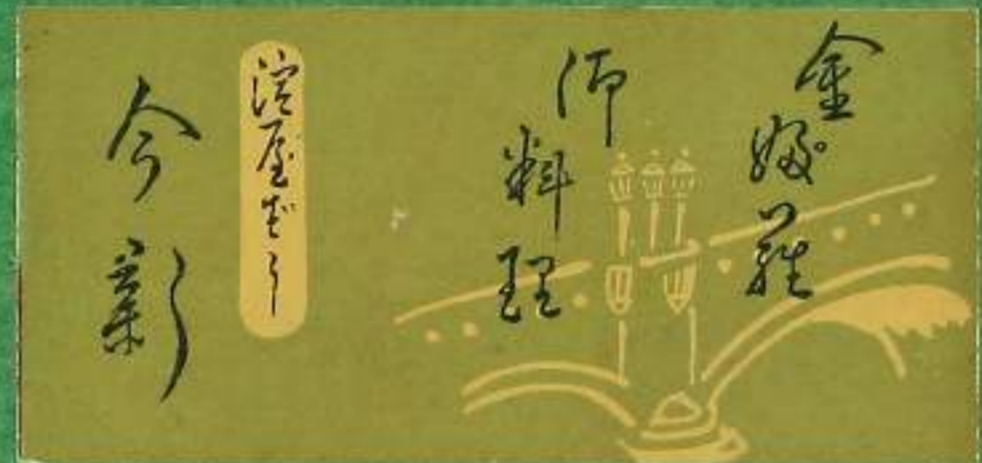 金婦゜羅
御料理
淀屋ばし
今新